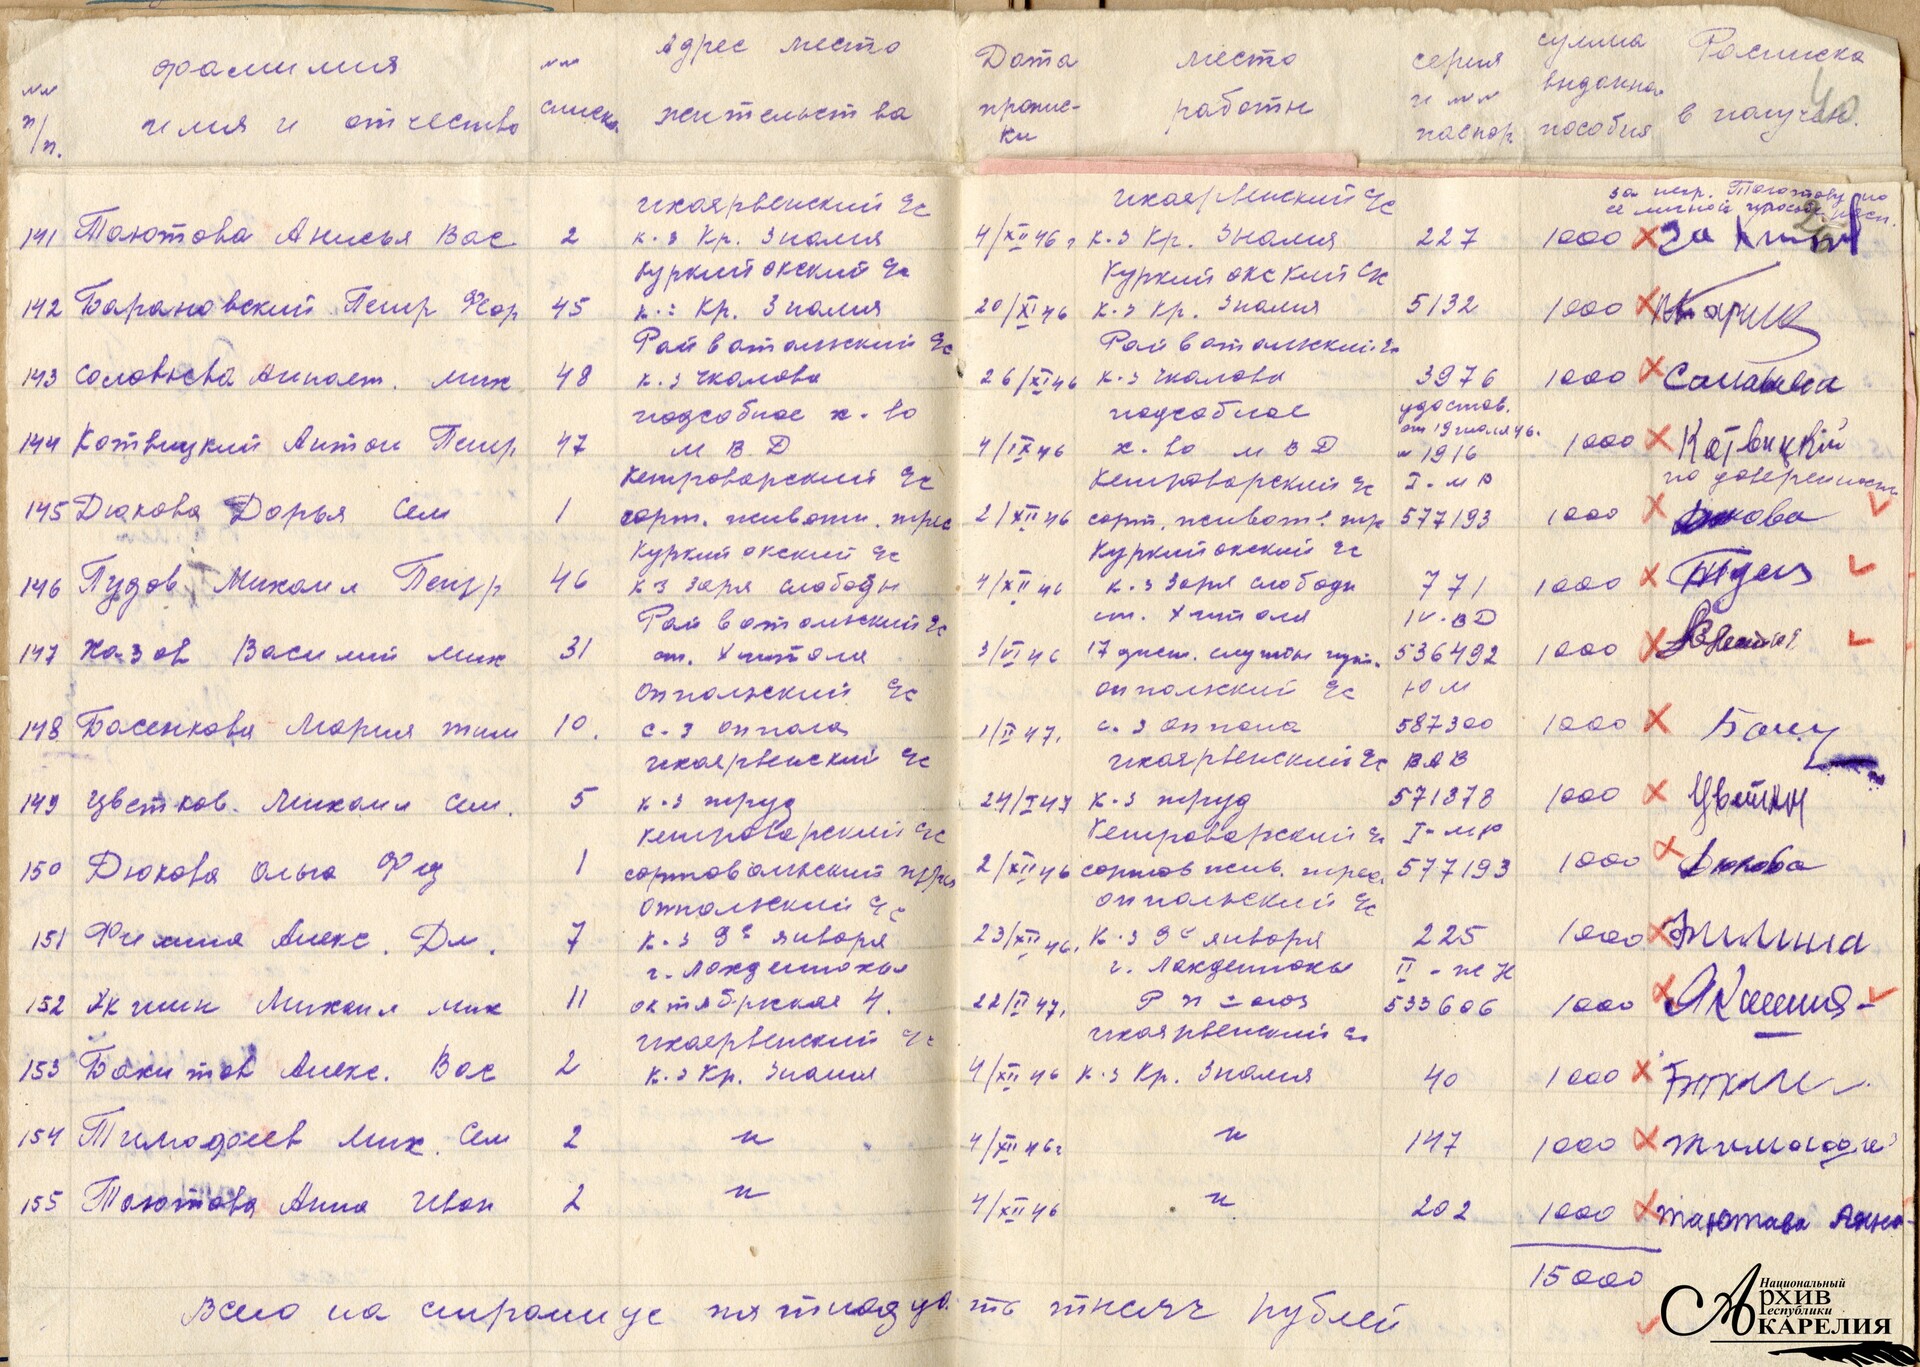 №№ п/п. фамилия имя и отчество №№ списка Адрес место жительства Дата пропис-ки место работы серия и №№ паспор. сумма выданна пособия Расписка в получен.
40
икаярвенский с/с икаярвенский с/с за негр. Таютову по ее личной просьбе расп.
141 Таютова Анисья Вас 2 к-з Кр. Знамя 4/XII 46 г к-з Кр. Знамя 227 1000 За
Куркийокский с/с Куркийокский с/с
142 Барановский Петр Фёор 45 к-з Кр. Знамя 20/XI 46 к-з Кр. Знамя 5132 1000
Райватальский с/с Райватальский с/с
143 Соловьева Анпаст. Мих 48 к-з Чкалова 26/XI 46 к-з Чкалова 3976 1000 Салавьева
подсобное х-во подсобное удостов. от 19 июля 46.
144 Котвицкий Антон Петр 47 М В Д 4/IX 46 х-во М В Д № 1916 1000 Котвицкий
Кетроварский с/с Кетроварский с/с I-МР по доверенность
145 Дюкова Дарья Сем 1 сорт. животн. трес 2/XII 46 сорт. животн. тре 577193 1000 Дюкова
Куркийокский с/с Куркийокский с/с
146 Пудов Михаил Петр 46 к-з Заря свободы 4/XII 46 к-з Заря свободы 771 1000
Райватальский с/с ст. Хитола IV-ВД
147 Назов Василий Мих 31 ст. Хитола 3/VI 46 17 дист. службы пути. 536492 1000
Оппольский с/с Оппольский с/с ЮМ
148 Басенкова Мария Тим 10. с-з Оппола 1/II 47. с-з Оппола 587300 1000
икаярвенский с/с икаярвенский с/с ВАВ
149 Цветков. Михаил Сем. 5 к-з Труд 24/I 47 к-з Труд 571378 1000
Кетроварский с/с Кетроварский с/с I-МР
150 Дюкова Ольга Фед 1 сортовальский трес 2/XII 46 сортов жив. трес. 577193 1000 Дюкова
Оппольский с/с Оппольский с/с
151 Филина Алекс. Дм. 7 к-з 9е января 23/XII 46. к-з 9е января 225 1000 Филина
г. Лахденпохья г. Лахденпохья II-ЖН
152 Якшин Михаил Мих 11 октябрьская 4. 22/II 47. Р П союз 533606 1000
икаярвенский с/с икаярвенский с/с
153 Бахитов Алекс. Вас 2 к-з Кр. Знамя 4/XII 46 к-з Кр. Знамя 40 1000
154 Тимофеев Мих. Сем 2 " 4/XII 46г " 147 1000 Тимофее
155 Таютова Анна Иван 2 " 4/XII 46 " 202 1000 таютава Анна
15000
Всего на странице пятнадцать тысяч рублей
Национальный Архив Республики Карелия